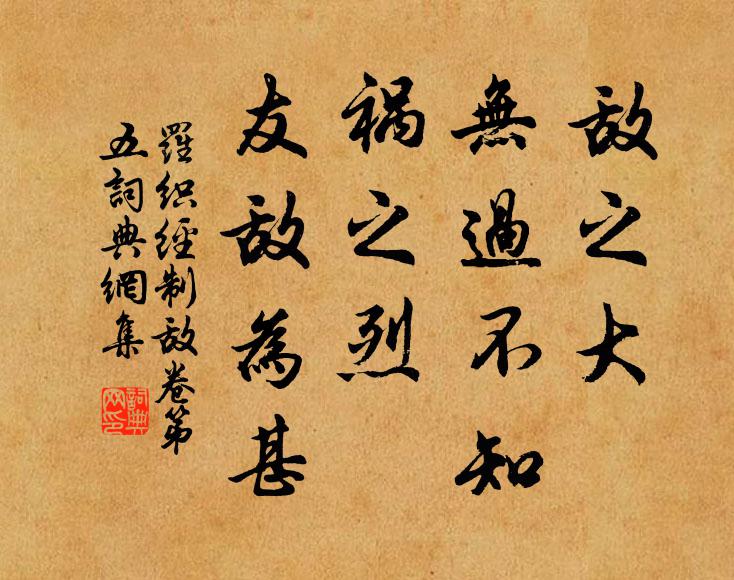 敌之大
無過不知
禍之烈
友敌為甚
羅织經制敌卷第
五詞典網集
詞典
网印